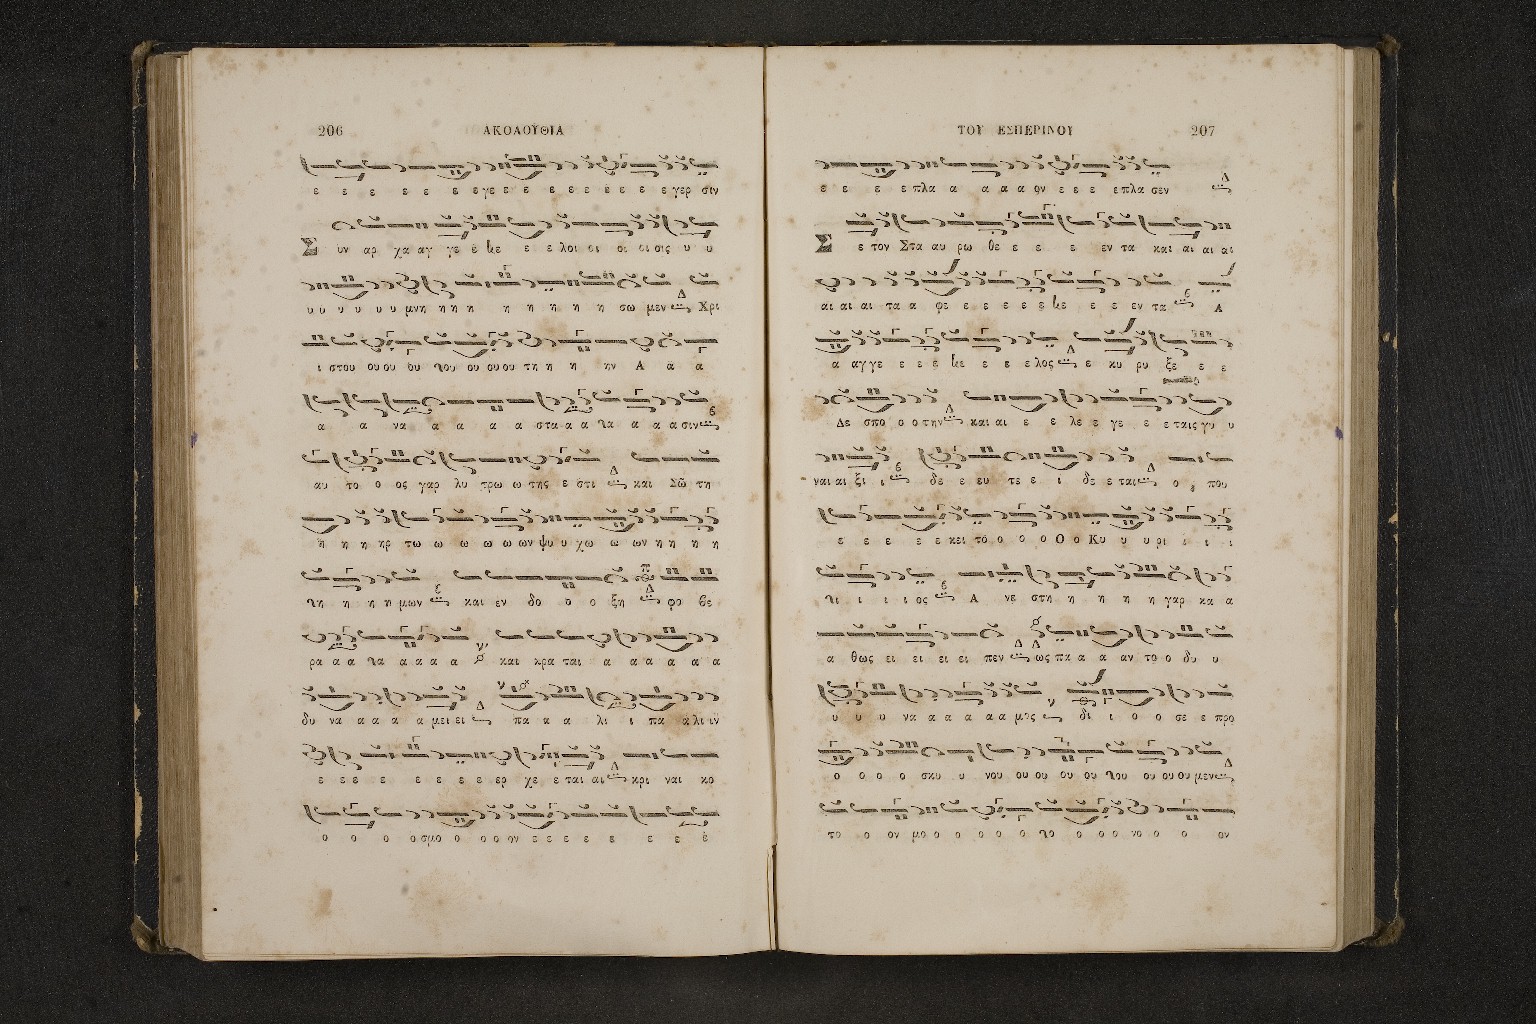 206 ΑΚΟΛΟΥΘΙΑ
ε ε ε ε ε ε ε γε ε ε ε ε ε ε ε ε ε γερ σιν
Σ υν αρ χα αγ γε ε λε ε ε λοι οι οι οι οις υ υ
υ υ υ υ υ υ μνη η η η η η η η η σω μεν Χρι
ι στου ου ου ου του ου ου ου τη η η ην Α α α
α α να α α α α στα α α τα α α α σιν
αυ το ο ος γαρ λυ τρω ω της ε στι και Σω τη
η η η ηρ τω ω ω ω ω ων ψυ υ χω ω ων η η η η
τη η η η μων και εν δο ο ο ξη φο βε
ρα α α τα α α α α και κρα ται α α α α α α
δυ να α α α α μει ει πα α α λι ι πα α λι ιν
ε ε ε ε ε ε ε ε ερ χε ε ται αι κρι ναι κο
ο ο ο ο σμο ο ο ο ον ε ε ε ε ε ε ε ε
ΤΟΥ ΕΣΠΕΡΙΝΟΥ 207
ε ε ε ε πλα α α α α ον ε ε ε ε πλα σεν
Σ ε τον Στα αυ ρω θε ε ε ε ε εν τα και αι αι αι
αι αι αι τα α φε ε ε ε ε ε λε ε ε εν τα Α
α αγ γε ε ε ε λε ε ε ε λος ε κυ ρυ ξε ε ε
Δε σπο ο ο την και αι ε ε λε ε γε ε ε ταις γυ υ
ναι αι ξι ι δε ε ευ τε ε ι δε ε ται ο που
ε ε ε ε ε κει το ο ο ο Ο ο Κυ υ υ ρι ι ι ι
τι ι ι ι ος Α νε στη η η η η γαρ κα α
α θως ει ει ει ει πεν ως πα α α αν το ο δυ υ
υ υ υ να α α α α α μος δι ι ο ο σε ε προ
ο ο ο ο σκυ υ νου ου ου ου ου του ου ου ου μεν
το ο ον μο ο ο ο ο ο ο το ο ο ο νο ο ο ον